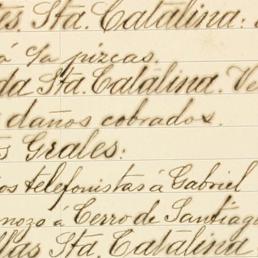 es. Sta. Catalina.
á c/a pizcas.
da Sta. Catalina. Ve
daños cobrados.
s Grales:
os telefonistas á Gabriel
nozo á Cerro de Santiago
llas Sta. Catalina